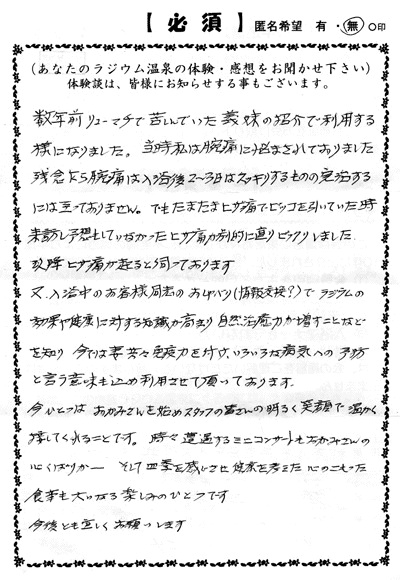 【 必 須 】 匿名希望 有 ・ 無 ○印
(あなたのラジウム温泉の体験・感想をお聞かせ下さい)
体験談は、皆様にお知らせする事もございます。
数年前リューマチで苦しんでいた義妹の紹介で利用する
様になりました。当時私は腕痛に悩まされておりました
残念ながら腕痛は入浴後2〜3日はスッキリするものの完治する
には至っておりません。でもたまたまヒザ痛でビッコを引いていた時
来訪し予想もしていなかったヒザ痛が劇的に直りビックリしました.
以降ヒザ痛が起ると伺っております
又、入浴中のお客様同志のおしゃべり(情報交換?)で ラジウムの
効果や健康に対する知識が高まり 自然治癒力が増すことなど
を知り 今では妻共々免疫力を付け、いろいろな病気への予防
と言う意味も込め利用させて頂っております.
今ひとつは おかみさんを始めスタッフの皆さんの明るく笑顔で温かく
接してくれることです。時々遭遇するミニコンサートもおかみさんの
心くばりかー そして四季を感じさせ 健康を考えた 心のこもった
食事も大いなる楽しみのひとつです
今後とも宜しくお願いします